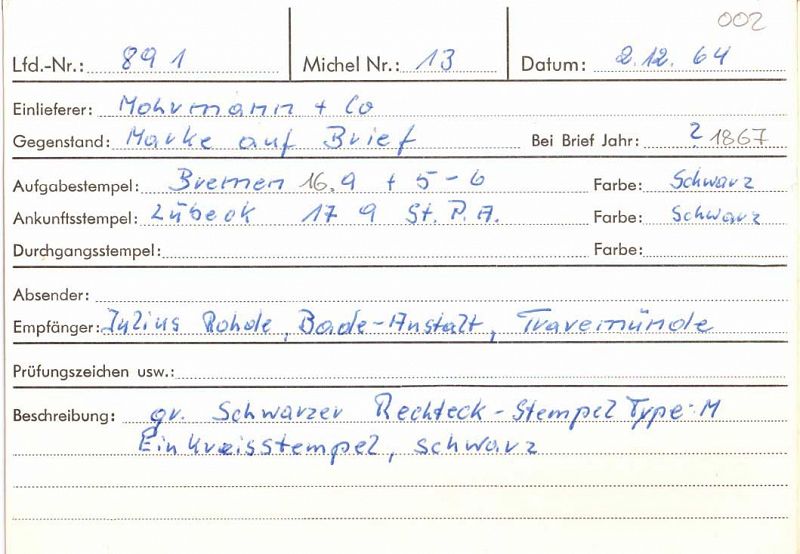 002
Lfd.-Nr.: 891 Michel Nr.: 13 Datum: 2.12.64
Einlieferer: Mohrmann + Co
Gegenstand: Marke auf Brief Bei Brief Jahr: ? 1867
Aufgabestempel: Bremen 16.9 + 5-6 Farbe: Schwarz
Ankunftsstempel: Lübeck 17 9 St.P.A. Farbe: Schwarz
Durchgangsstempel: Farbe:
Absender:
Empfänger: Julius Rohde, Bade-Anstalt, Travemünde
Prüfungszeichen usw.:
Beschreibung: gr. Schwarzer Rechteck-Stempel Type: M
Einkreisstempel, schwarz